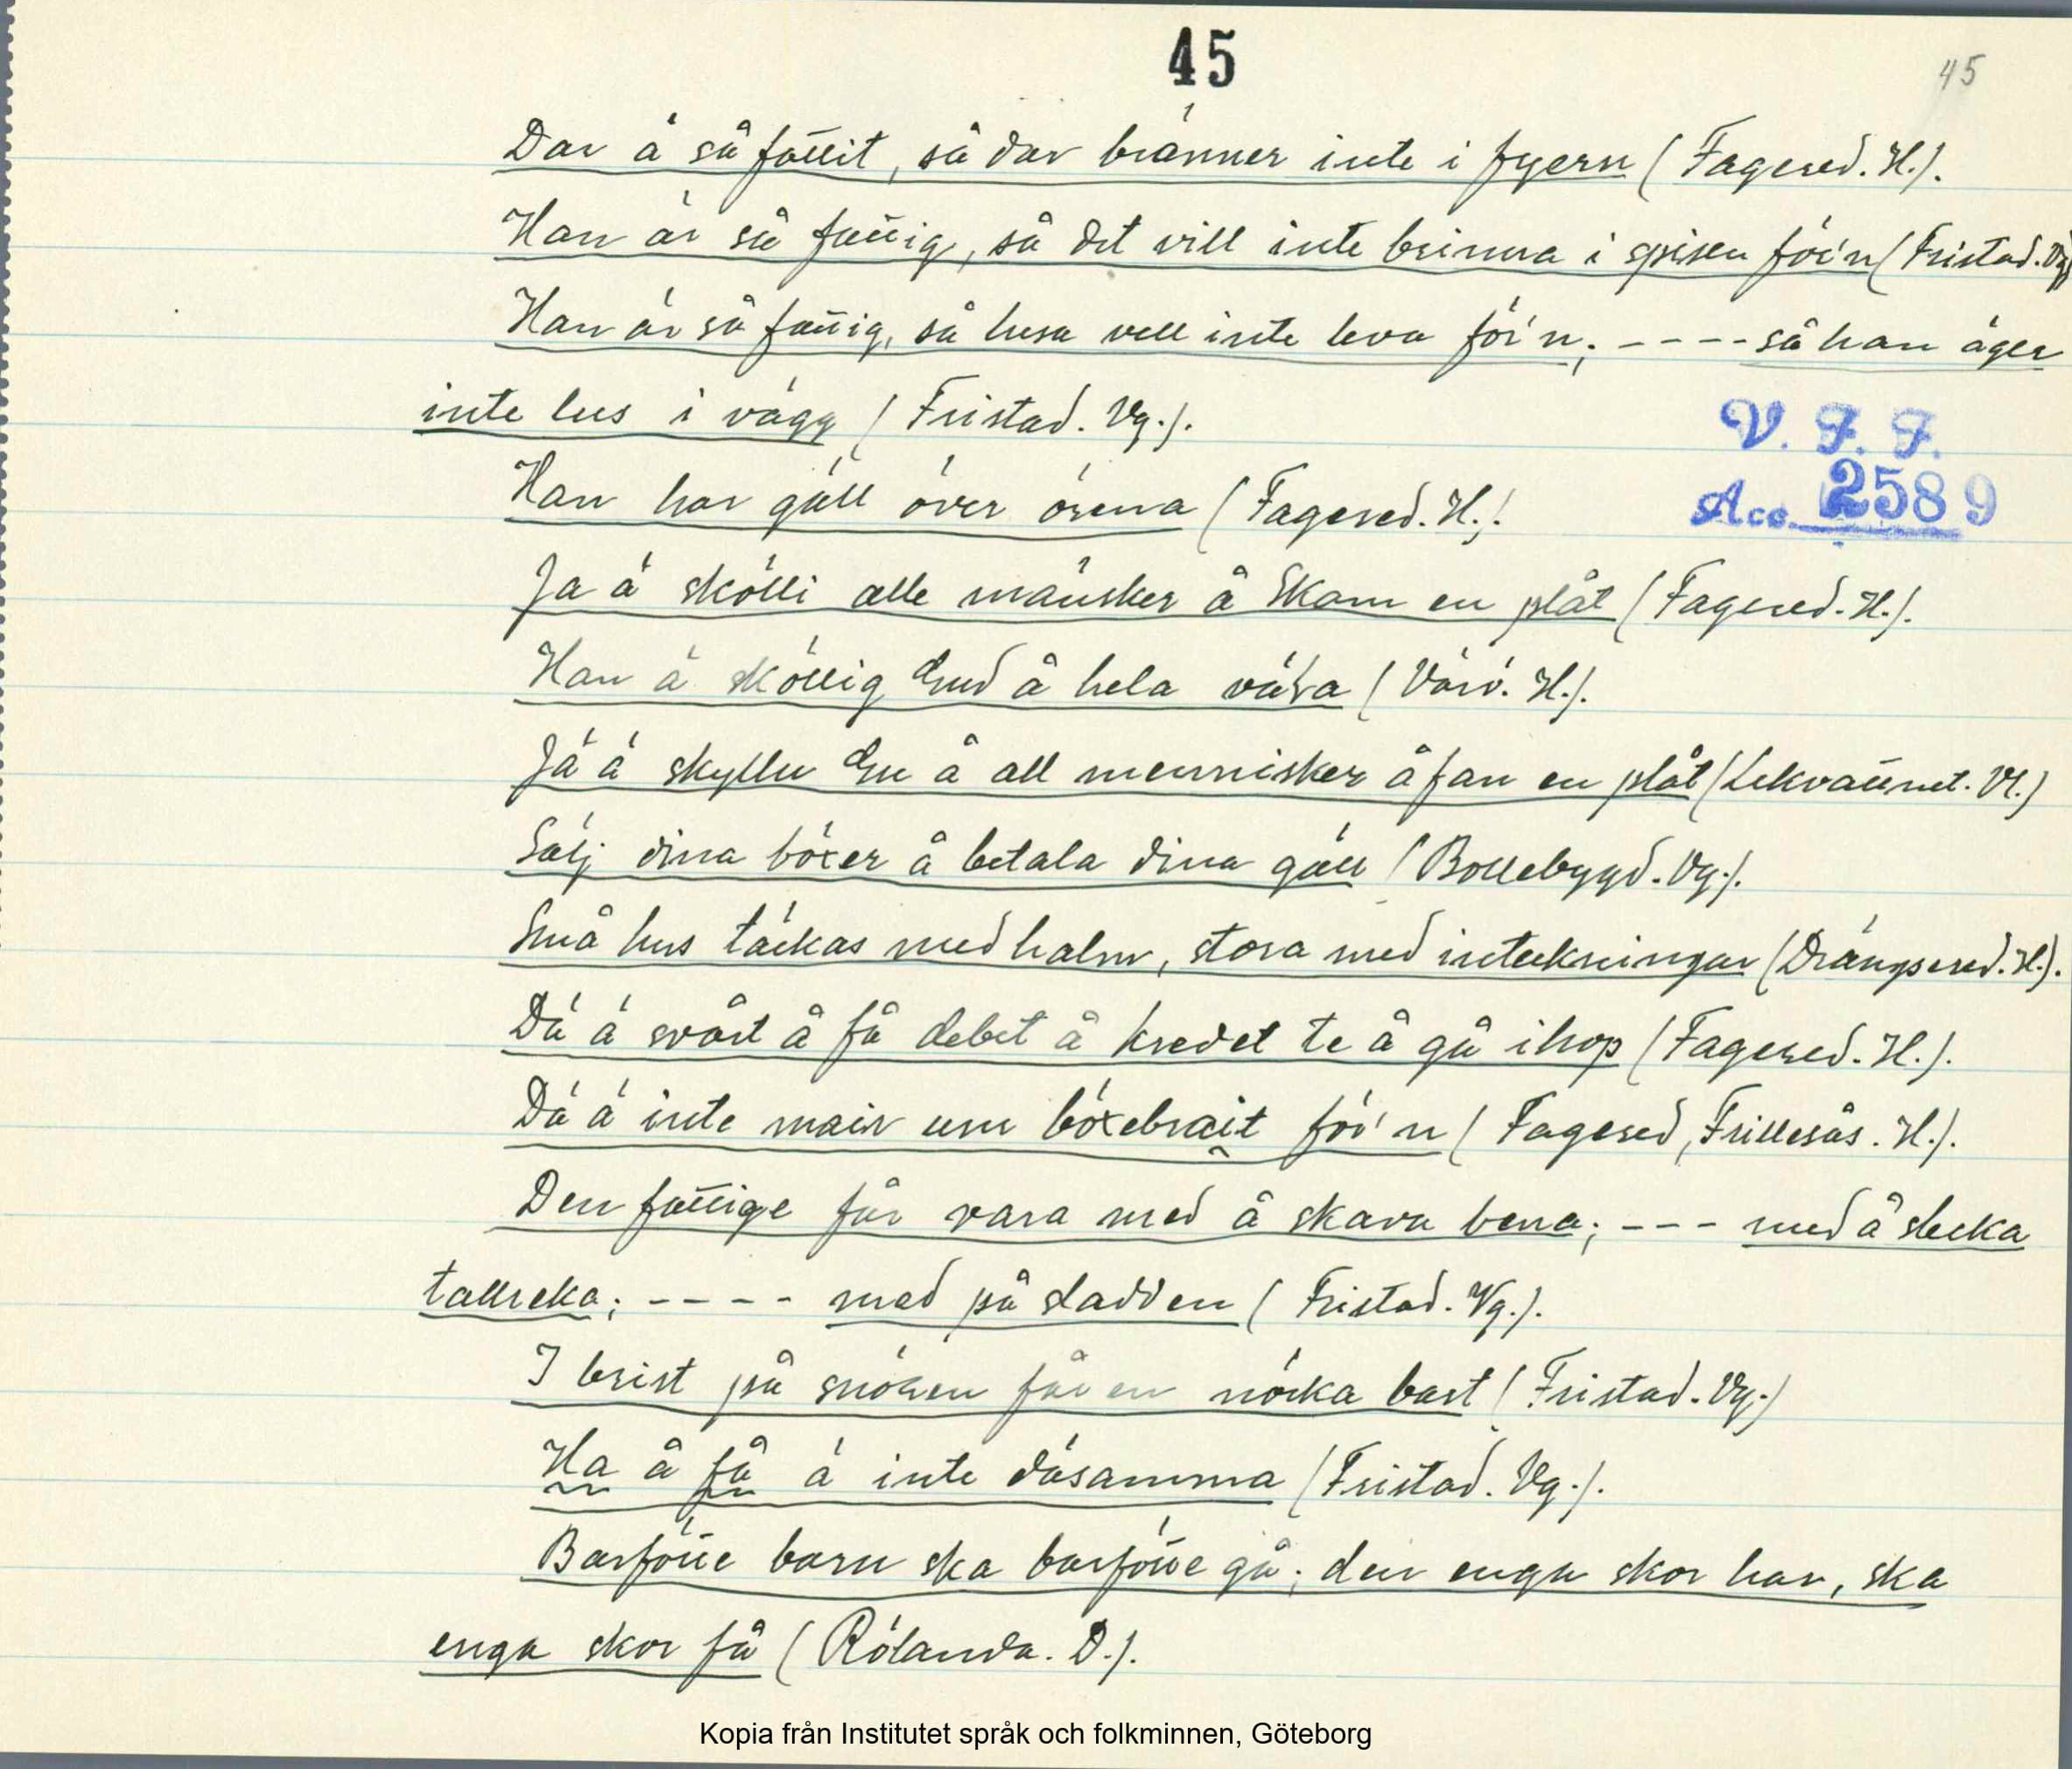 45
45
Där ä så fattit, så där bränner inte i fyern (Fagered. H.).
Han är så fattig, så det vill inte brinna i spisen för'n (Fristad. Vg.)
Han är så fattig, så lusa vell inte leva för'n; ---- så han äger
inte lus i vägg (Fristad. Vg.).
V. F. F.
Acc. 2589
Han har gäll över örena (Fagered. H.).
Ja ä skölli alle mänsker å Skam en plåt (Fagered. H.).
Han ä sköllig Gud å hela väla (Värö. H.).
Jä ä skyllu Gu å all mennisker å fan en plåt (Lekvattnet. Vl.)
Sälj dina böxer å betala dina gäll (Bollebygd. Vg.).
Små hus täckas med halm, stora med inteckningar (Drängsered. H.).
Dä ä svårt å få debet å kredet te å gå ihop (Fagered. H.).
Dä ä inte mair um böxebrait för'n (Fagered, Frillesås. H.).
Den fattige får vara med å skava bena; --- med å slecka
tallreka; ---- med på sladden (Fristad. Vg.).
I brist på snören får en nöcka bast (Fristad. Vg.)
Ha å få ä inte däsamma (Fristad. Vg.).
Barfötte barn ska barfötte gå; den enga skor har, ska
enga skor få (Rölanda. D.).
Kopia från Institutet språk och folkminnen, Göteborg